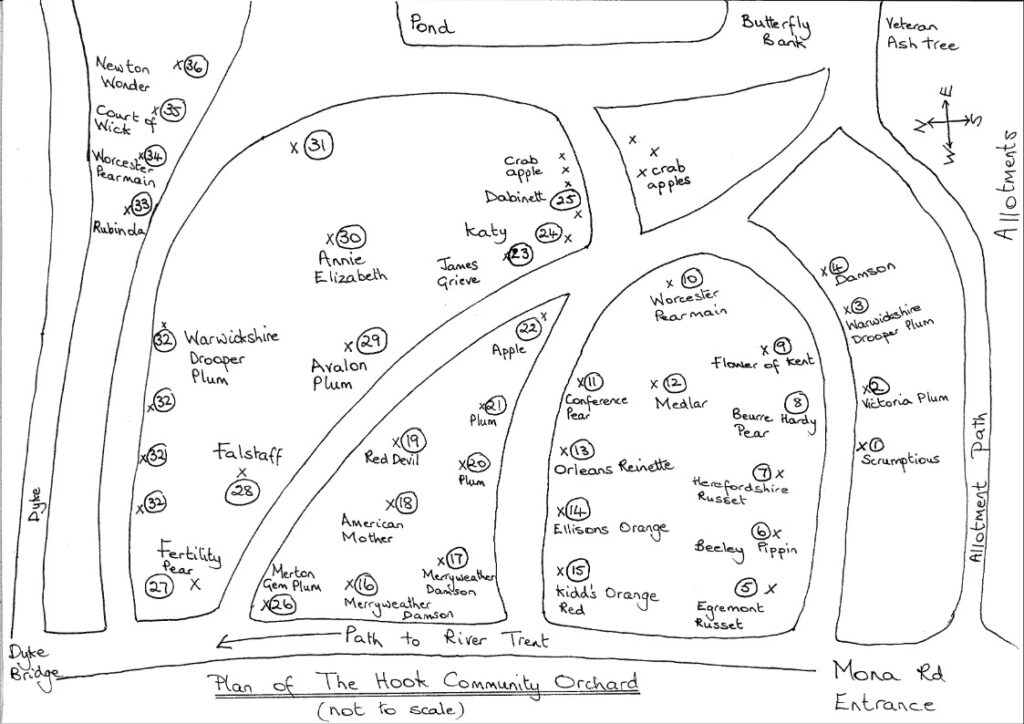 Pond
Butterfly
Bank
Veteran
Ash Tree
E
N
S
W
Allotments
Newton
Wonder
x 36
Court of
Wick
x 35
Worcester
Pearmain
x 34
x 33
Rubinola
x 31
Crab
apple
x
x
x
Dabinett
25
x
Katy
24 x
x 23
James
Grieve
x
x
x crab
apples
x 30
Annie
Elizabeth
x
32
Warwickshire
Drooper
Plum
x 32
x 32
x 32
x 29
Avalon
Plum
Falstaff
x
28
Fertility
Pear
27 x
x
22
Apple
x 21
Plum
x 20
Plum
x 19
Red Devil
x 18
American
Mother
x 17
Merryweather
Damson
x 16
Merryweather
Damson
Merton
Gem Plum
x 26
x 10
Worcester
Pearmain
x 9
Flower of Kent
x 11
Conference
Pear
x 12
Medlar
8
Beurre Hardy
Pear
x 13
Orleans Reinette
7 x
Herefordshire
Russet
x 14
Ellisons Orange
6 x
Beeley Pippin
x 15
Kidd's Orange
Red
5 x
Egremont
Russet
x 4
Damson
x 3
Warwickshire
Drooper Plum
x 2
Victoria Plum
x 1
Scrumptious
Allotment Path
Dyke
Dyke
Bridge
Path to River Trent
Mona Rd
Entrance
Plan of The Hook Community Orchard
(not to scale)